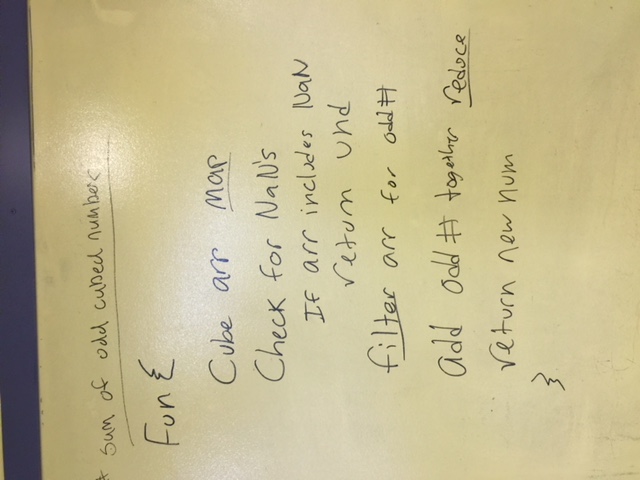 # sum of odd cubed numbers
Fun {
Cube arr map
Check for NaN's
If arr includes NaN
return und
filter arr for odd #
add odd # together reduce
return new num
}